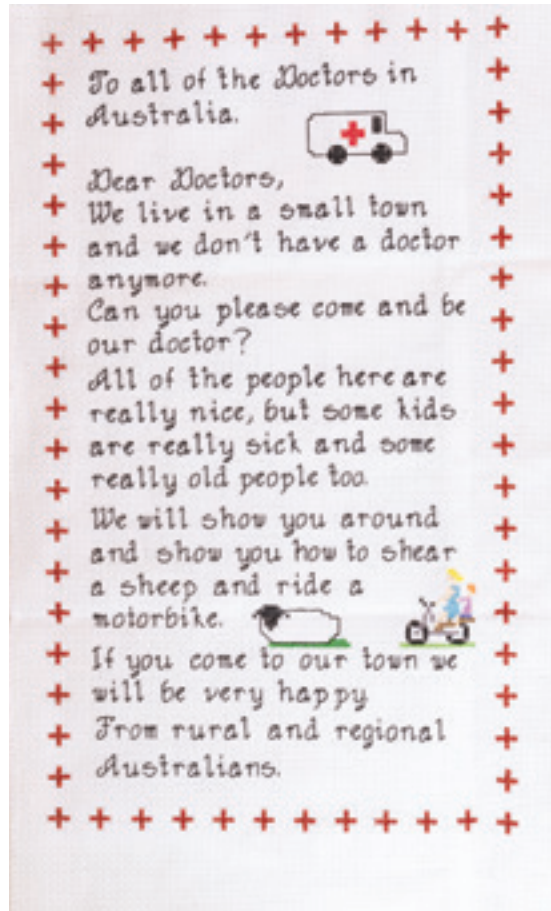 To all of the Doctors in
Australia.
Dear Doctors,
We live in a small town
and we don't have a doctor
anymore.
Can you please come and be
our doctor?
All of the people here are
really nice, but some kids
are really sick and some
really old people too.
We will show you around
and show you how to shear
a sheep and ride a
motorbike.
If you come to our town we
will be very happy
From rural and regional
Australians.